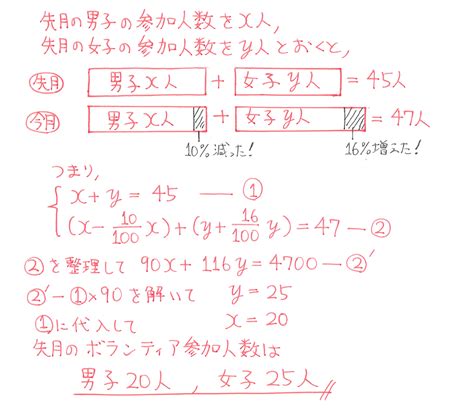 先月の男子の参加人数をx人,
先月の女子の参加人数をy人とおくと,
先月 男子x人 + 女子y人 = 45人
今月 男子x人 + 女子y人 = 47人
10%減った! 16%増えた!
つまり,
x+y=45 — ①
(x-10/100x)+(y+16/100y)=47 — ②
②を整理して 90x+116y=4700 — ②'
②'-①×90を解いて y=25
①に代入して x=20
先月のボランティア参加人数は
男子20人, 女子25人